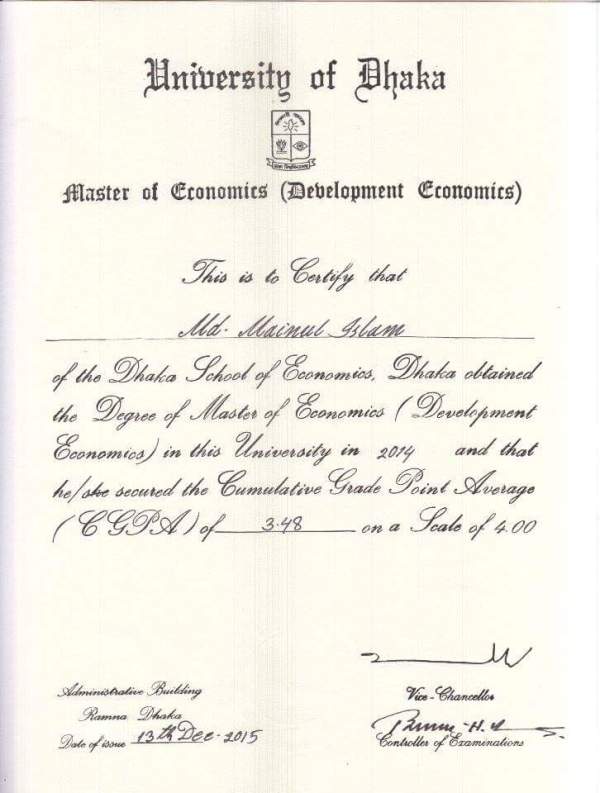 University of Dhaka
Master of Economics (Development Economics)
This is to Certify that
Md. Mainul Islam
of the Dhaka School of Economics, Dhaka obtained
the Degree of Master of Economics (Development
Economics) in this University in 2014 and that
he/she secured the Cumulative Grade Point Average
(CGPA) of 3.48 on a Scale of 4.00
Administrative Building
Ramna Dhaka
Date of issue 13th Dec-2015
Vice-Chancellor
Controller of Examinations